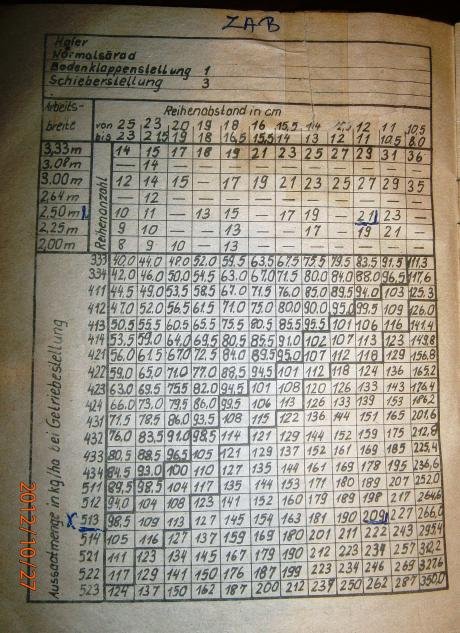 ZAB
Hafer
Normalsärad
Bodenklappenstellung 1
Schieberstellung 3
Arbeits-breite Reihenabstand in cm
von 25 23 20 19 18 16 15,5 14 12 11 10,5
bis 23 21,5 19 18 16,5 15,5 14 13 12 11 10,5 8,0
Reihenanzahl
3,33 m 14 15 17 18 19 21 23 25 27 29 31 36
3.08 m — 14 — — — — — — — — — —
3.00 m 12 14 15 — 17 19 21 23 25 27 29 35
2,64 m — 12 — — — — — — — — — —
2,50 m 10 11 — 13 15 — 17 19 — 21 23 —
2,25 m 9 10 — — 13 — — 17 — 19 21 —
2,00 m 8 9 10 — 13 — — — — — — —
Aussaatmenge in kg/ha bei Getriebestellung
333 40,0 44,0 48,0 52,0 59,5 63,5 67,5 75,5 79,5 83,5 91,5 111,3
334 42,0 46,0 50,0 54,5 63,0 67,0 71,5 80,0 84,0 88,0 96,5 117,6
411 44,5 49,0 53,5 58,5 67,0 71,5 76,0 85,0 89,5 94,0 103 125,3
412 47,0 52,0 56,5 61,5 71,0 75,0 80,0 90,0 95,0 99,5 109 126,0
413 50,5 55,5 60,5 65,5 75,5 80,5 85,5 95,5 101 106 116 141,4
414 53,5 59,0 64,0 69,5 80,5 85,5 91,0 102 107 113 123 149,8
421 56,0 61,5 67,0 72,5 84,0 89,5 95,0 107 112 118 129 156,8
422 59,0 65,0 71,0 77,0 88,5 94,5 101 112 118 124 136 165,2
423 63,0 69,5 75,5 82,0 94,5 101 108 120 126 133 143 176,4
424 66,0 73,0 79,5 86,0 99,5 106 113 126 133 139 153 186,2
431 71,5 78,5 86,0 93,5 108 115 122 136 144 151 165 201,6
432 76,0 83,5 91,0 98,5 114 121 129 144 152 159 175 212,8
433 80,5 88,5 96,5 105 121 129 137 152 161 169 185 225,4
434 84,5 93,0 100 110 127 135 144 161 169 178 195 236,6
511 89,5 98,5 104 117 135 144 153 171 180 189 207 252,0
512 94,0 104 108 123 141 152 160 179 189 198 217 264,6
x 513 98,5 109 113 127 145 154 163 181 190 209 227 266,0
514 105 116 127 137 159 169 180 201 211 222 243 295,4
521 111 123 134 145 167 179 190 212 223 234 257 312,2
522 117 129 141 150 176 187 199 223 234 246 269 327,6
523 124 137 150 162 187 200 212 237 250 262 287 350,0
2012/10/27